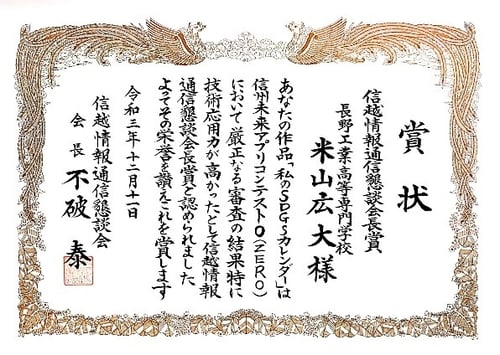 賞状
信越情報通信懇談会長賞
長野工業高等専門学校
米山広大様
あなたの作品「私のSDGsカレンダー」は
信州未来アプリコンテスト0(ZERO)
において厳正なる審査の結果特に
技術応用力が高かったとして信越情報
通信懇談会長賞と認められました
よってその栄誉を讃えこれを賞します
令和三年十二月十一日
信越情報通信懇談会
会長 不破 泰